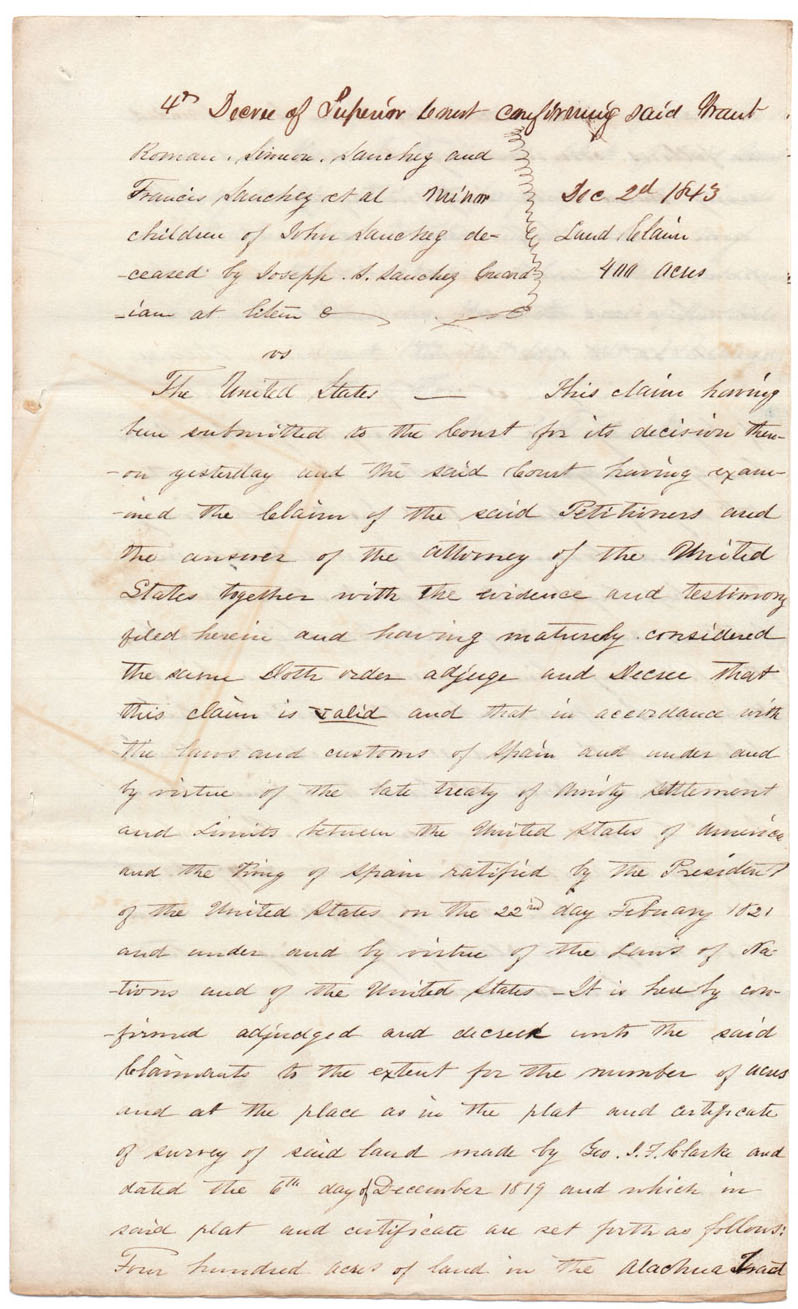 4th Decree of Superior Court confirming said Grant
Roman. Simeon. Sanchez and
Francis Sanchez et al minor Dec 2d 1843
children of John Sanchez de- Land Claim
-ceased by Joseph. S. Sanchez Guard 400 acres
-ian at litem &
vs
The United States — This claim having
been submitted to the Court for its decision there-
-on yesterday and the said Court having exam-
-ined the Claim of the said Petitioners and
the answer of the attorney of the United
States together with the evidence and testimony
filed herein and having maturely considered
the same Doth order adjuge and Decree that
this claim is valid and that in accordance with
the laws and customs of Spain and under and
by virtue of the late treaty of Amity settlement
and Limits between the United States of America
and the King of Spain ratified by the President
of the United States on the 22nd day February 1821
and under and by virtue of the Laws of Na-
-tions and of the United States - It is here by con-
-firmed adjudged and decreed unto the said
Claimants to the extent for the number of acres
and at the place as in the plat and certificate
of survey of said land made by Geo. J. F. Clarke and
dated the 6th day of December 1819 and which in
said plat and certificate are set forth as follows:
Four hundred acres of land in the Alachua Tract